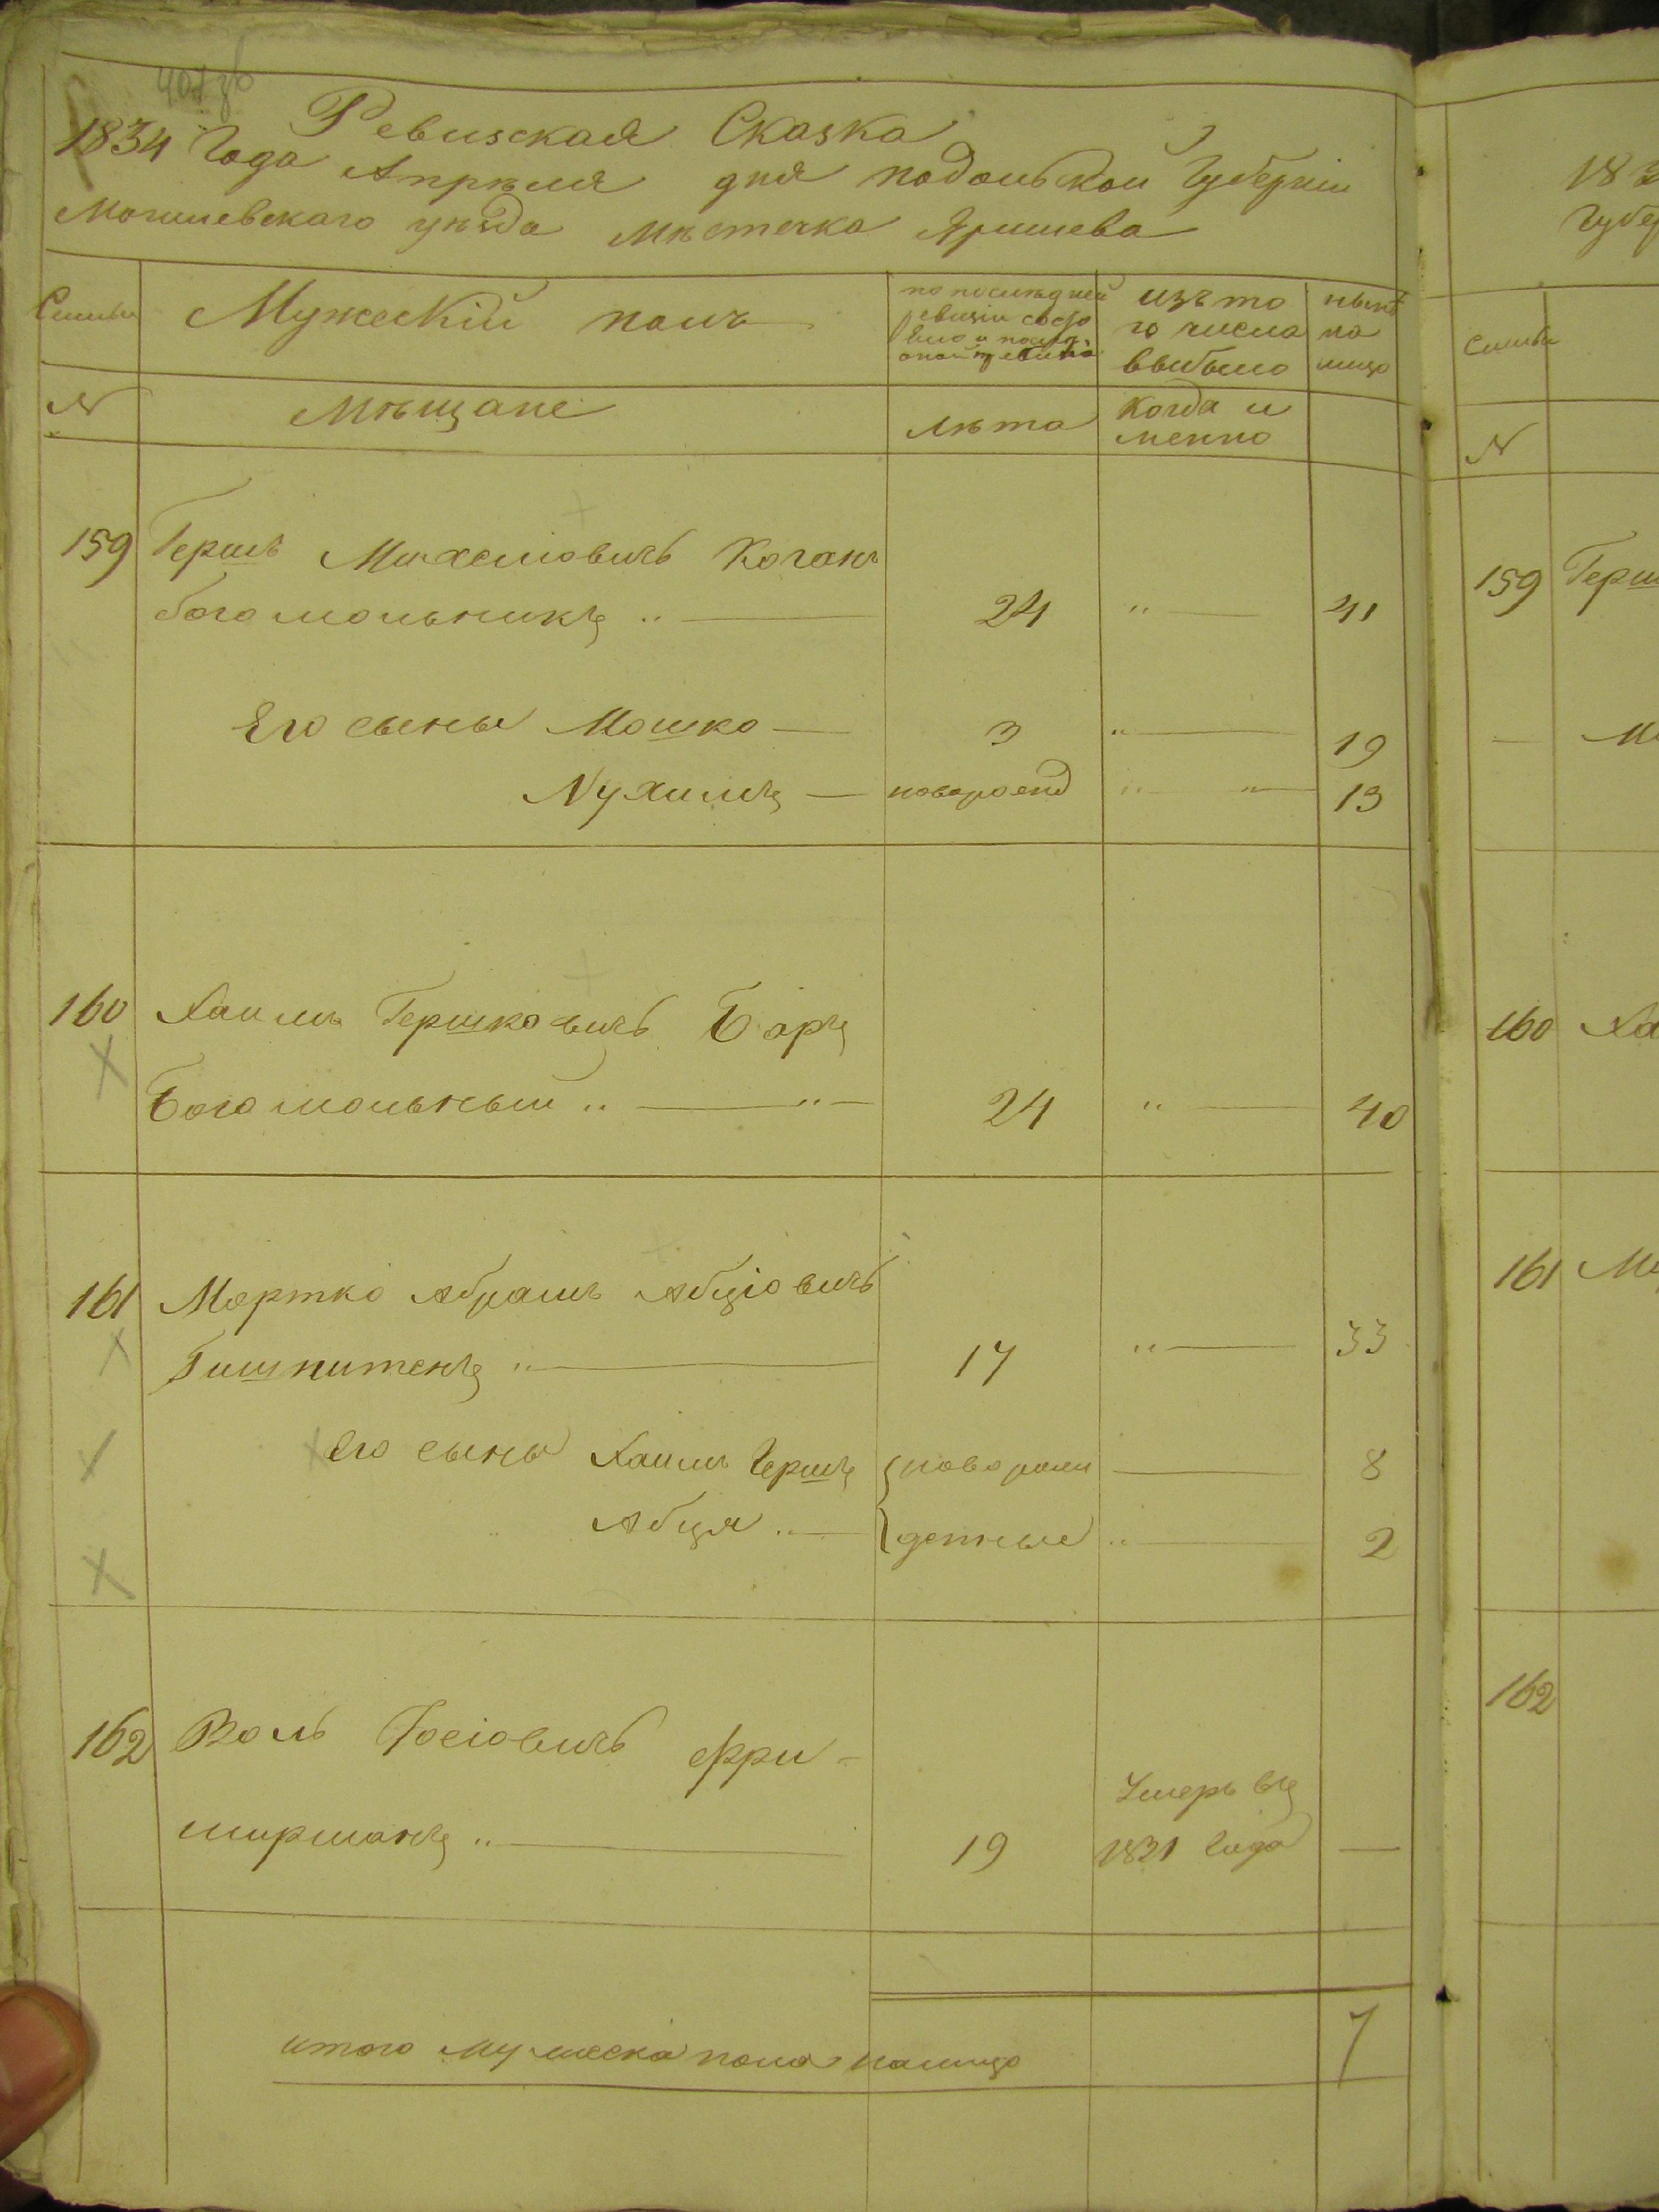 Ревизская Сказка
1834 Года Апреля дня подольской Губернии
Могилевскаго уѣзда Мѣстечка Яришева
Семьи
Мужескій полъ
по последней
ревизіи состо
яло и после
изъ то
го числа
выбыло
нынѣ
на
лицо
N
Мѣщане
лѣта
когда и
менно
159 Гершъ Михелиовичъ Коганъ
богомольникъ „ — 24 „ — 41
Его сыны Мошко — 3 „ — 19
Нухимъ — новорожд „ „ 13
160 Хаимъ Гершковичъ Боръ
Богомольный „ — „ — 24 „ — 40
161 Мортко Абрамъ Абціовичъ
Гишпитенъ „ — 17 „ — 33
Его сыны Хаимъ Гершъ новорож — 8
Абця „ — денные „ — 2
162 Воль Іосіовичъ Фри-
ширманъ „ — 19
Умеръ въ
1831 года —
итого мужеска пола налицо 7
183
Губер
Семьи
N
159 Герш
— М
160 Ха
161 М
162